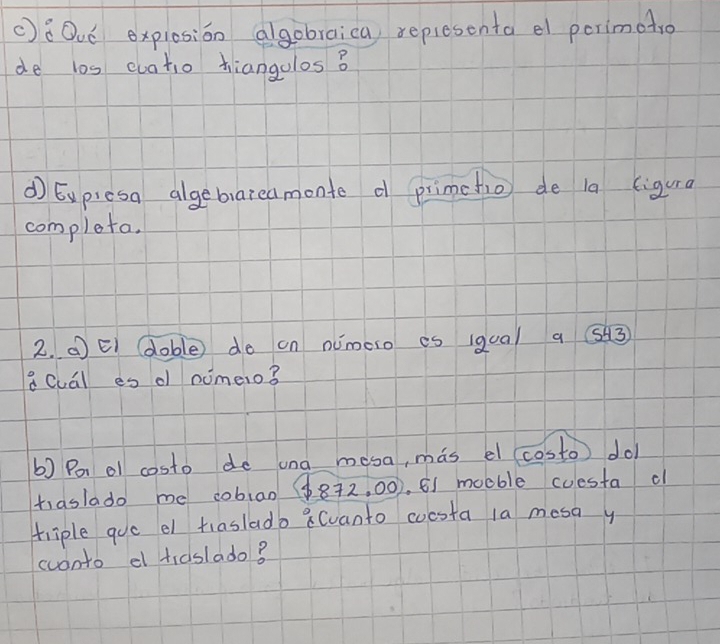 c) ¿Qué expresión algebraica representa el perimetro
de los cuatro triangulos?
d) Expresa algebraicamente el primetro de la figura
completa.
2. a) El doble de un número es igual a 543
¿Cuál es el número?
b) Por el costo de una mesa, más el costo del
traslado me cobran $872.00. El mueble cuesta el
triple que el traslado ¿Cuanto cuesta la mesa y
cuanto el traslado?